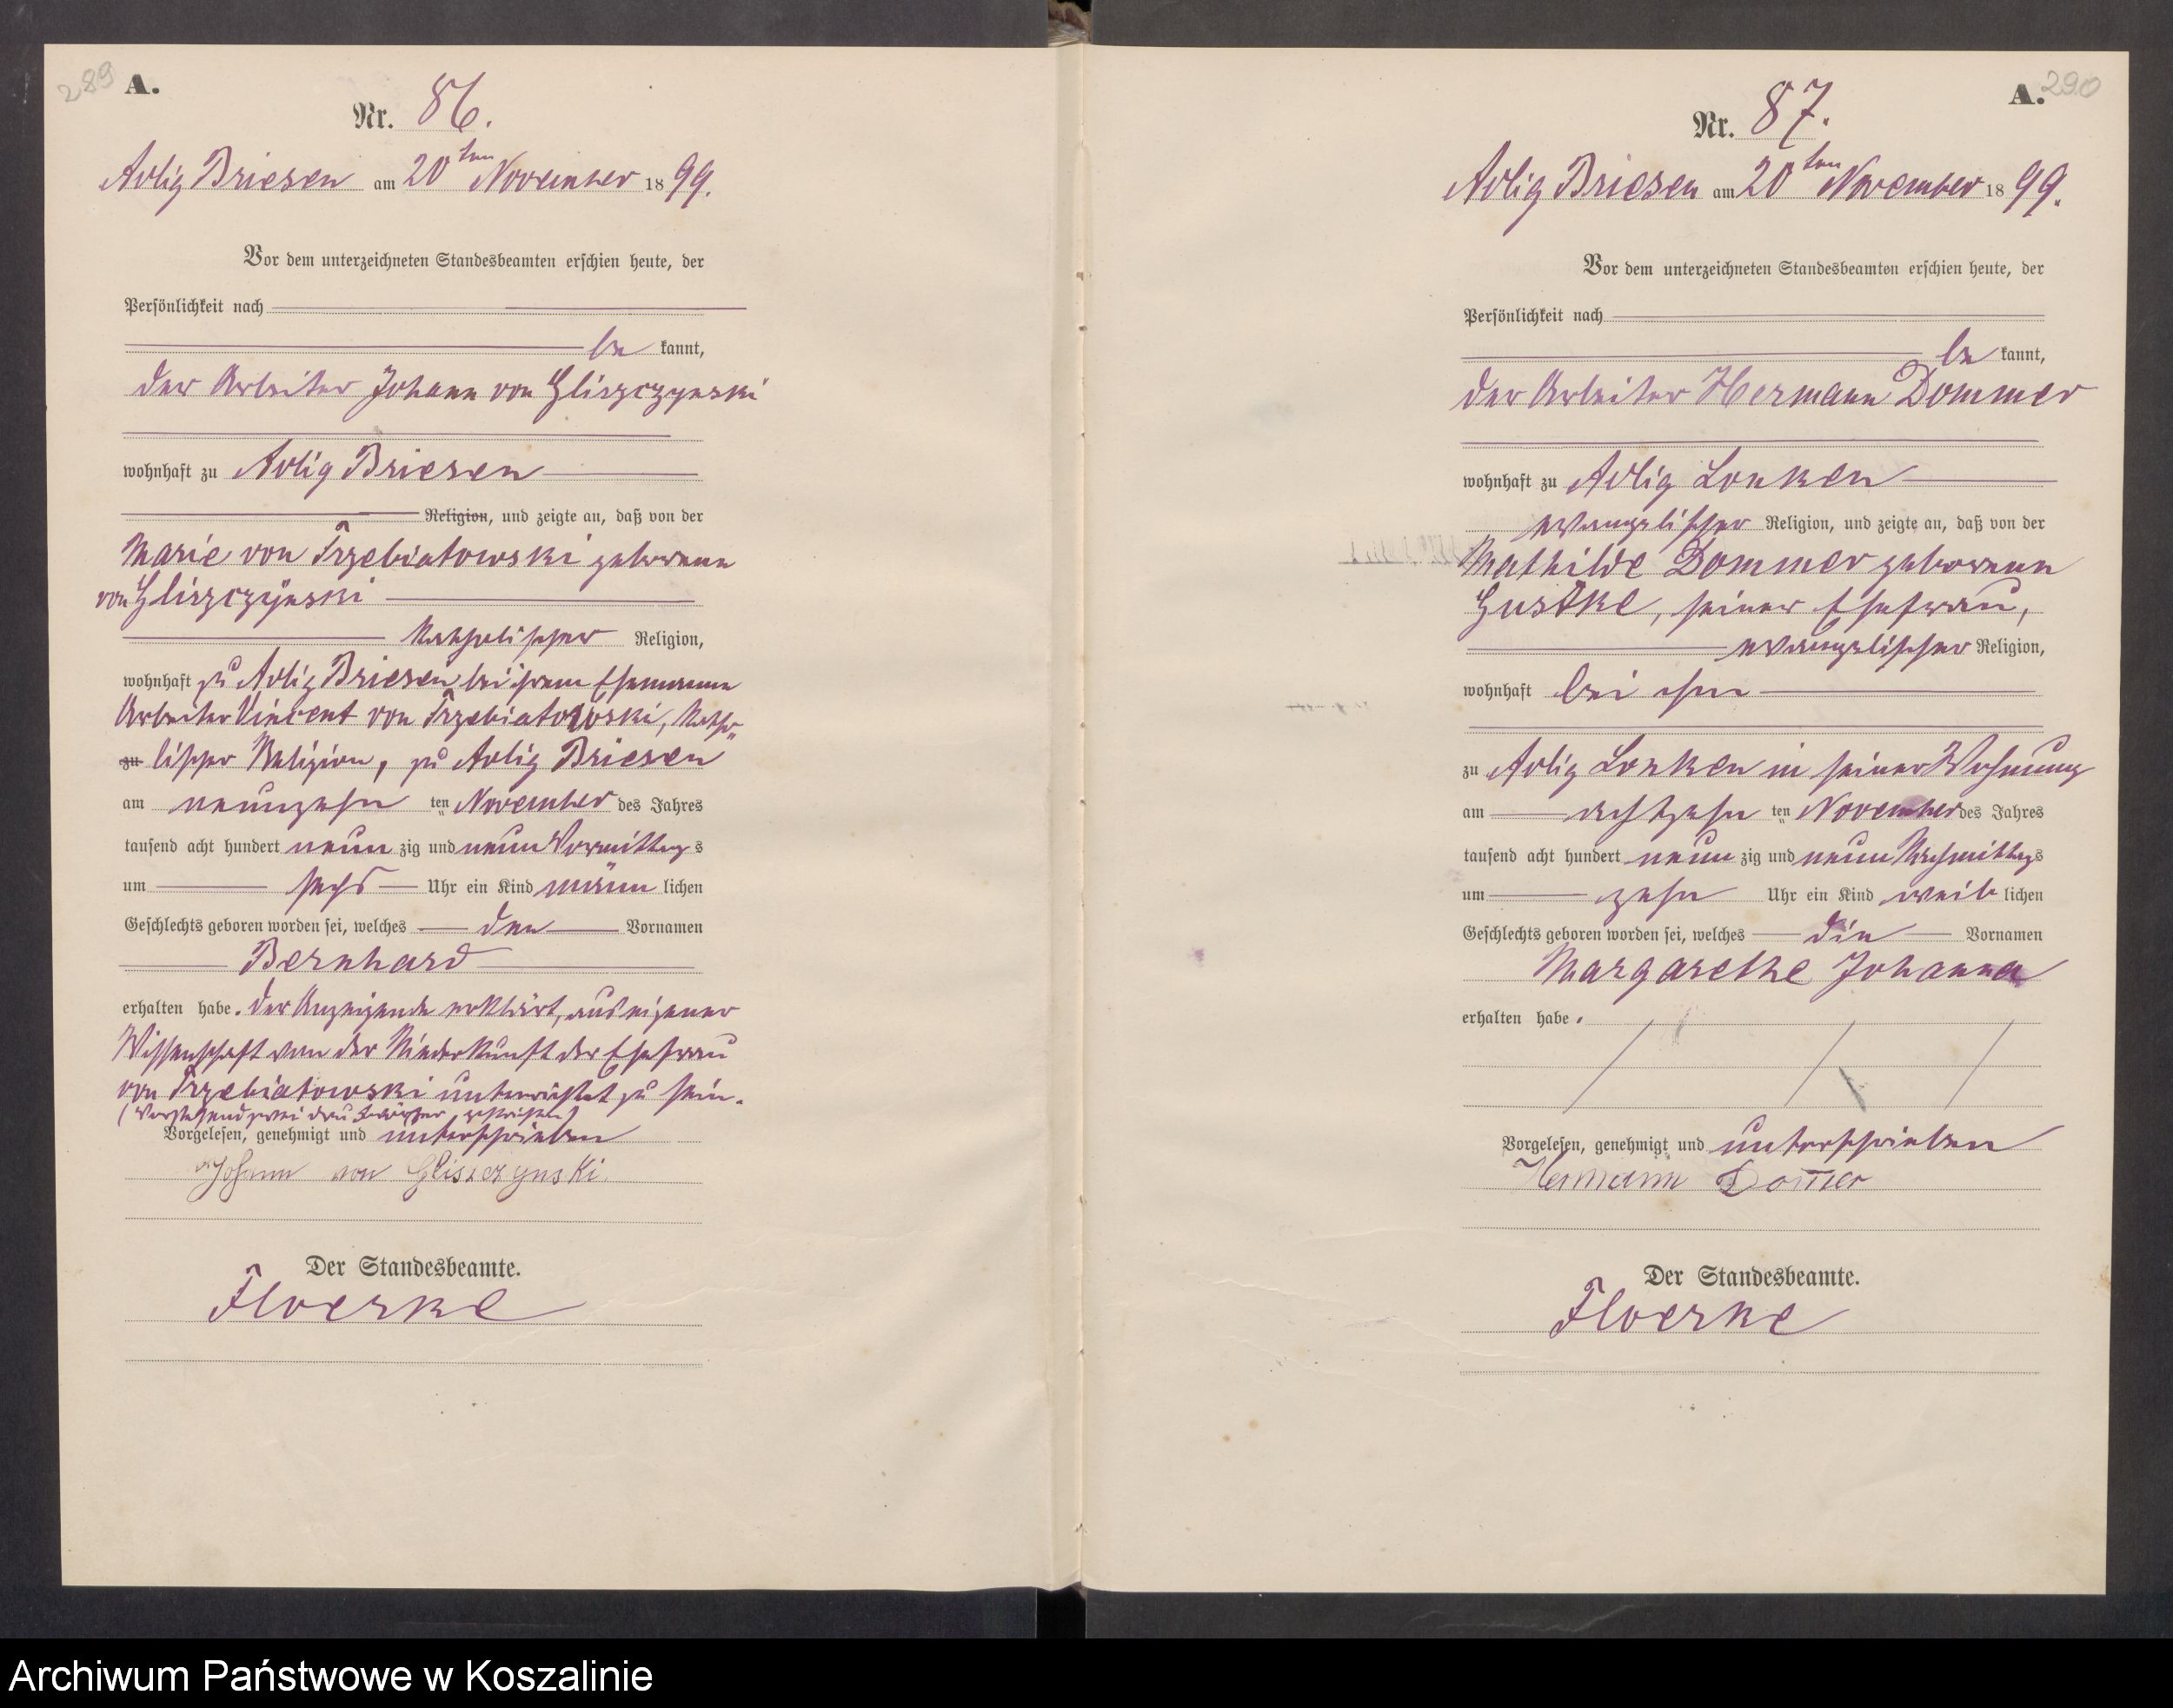 289
A.
Nr. 86.
Adlig Briesen am 20ten November 1899.
Vor dem unterzeichneten Standesbeamten erschien heute, der
Persönlichkeit nach
be kannt,
der Arbeiter Johann von Gliszczynski
wohnhaft zu Adlig Briesen
Religion, und zeigte an, daß von der
Marie von Trzebiatowski geborenen
von Gliszczynski
katholischer Religion,
wohnhaft zu Adlig Briesen bei ihrem Ehemanne
Arbeiter Vincent von Trzebiatowski, katho-
zu lischer Religion, zu Adlig Briesen
am neunzehn ten November des Jahres
tausend acht hundert neun zig und neun Vormittag s
um sechs Uhr ein Kind männ lichen
Geschlechts geboren worden sei, welches den Vornamen
Bernhard
erhalten habe. Der Anzeigende erklärt, aus eigener
Wissenschaft von der Niederkunft der Ehefrau
von Trzebiatowski unterrichtet zu sein.
(Vorstehend zwei gestrichen)
Vorgelesen, genehmigt und unterschrieben
Johann von Gliszczynski.
Der Standesbeamte.
Floerke
A. 290
Nr. 87.
Adlig Briesen am 20ten November 1899.
Vor dem unterzeichneten Standesbeamten erschien heute, der
Persönlichkeit nach
be kannt,
der Arbeiter Hermann Dommer
wohnhaft zu Adlig Lonken
evangelischer Religion, und zeigte an, daß von der
Mathilde Dommer geborenen
Gustke, seiner Ehefrau,
evangelischer Religion,
wohnhaft bei ihm
zu Adlig Lonken in seiner Wohnung
am achtzehn ten November des Jahres
tausend acht hundert neun zig und neun Nachmittags
um zehn Uhr ein Kind weib lichen
Geschlechts geboren worden sei, welches die Vornamen
Margarethe Johanna
erhalten habe.
Vorgelesen, genehmigt und unterschrieben
Hermann Dom̄er
Der Standesbeamte.
Floerke
Archiwum Państwowe w Koszalinie